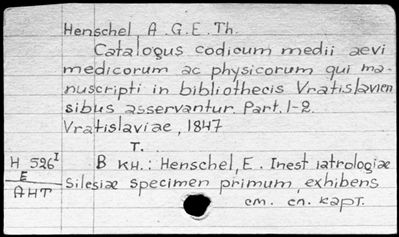 Henschel, A.G.E.Th.
Catalogus codicum medii aevi
medicorum ac physicorum qui ma-
nuscripti in bibliothecis Vratislavien
sibus asservantur. Part. 1-2.
Vratislaviae, 1847
T.
H 526¹
E
АНТ
В кн.: Henschel, E. Inest iatrologiæ
Silesiæ specimen primum, exhibens
см. сл. карт.